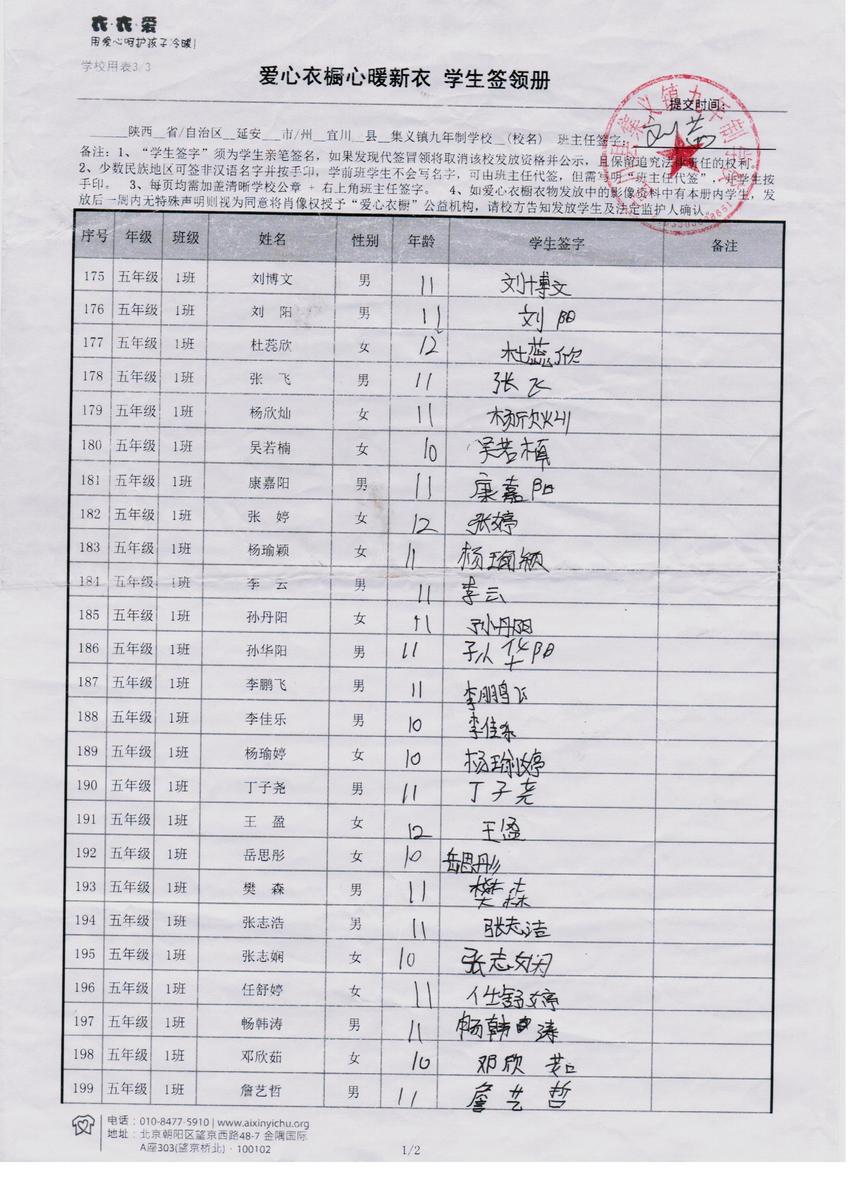 衣·衣·爱
用爱心呵护孩子冷暖!
学校用表3/3
爱心衣橱心暖新衣 学生签领册
提交时间:
陕西 省/自治区 延安 市/州 宜川 县 集义镇九年制学校 (校名) 班主任签字
备注: 1、“学生签字”须为学生亲笔签名，如果发现代签冒领将取消该校发放资格并公示，且保留追究法律责任的权利。
2、少数民族地区可签非汉语名字并按手印，学前班学生不会写名字，可由班主任代签，但需写明“班主任代签”，并学生按
手印。 3、每页均需加盖清晰学校公章 + 右上角班主任签字。 4、如爱心衣橱衣物发放中的影像资料中有本册内学生，发
放后一周内无特殊声明则视为同意将肖像权授予“爱心衣橱”公益机构，请校方告知发放学生及法定监护人确认。
序号 年级 班级 姓名 性别 年龄 学生签字 备注
175 五年级 1班 刘博文 男 11 刘博文
176 五年级 1班 刘 阳 男 11 刘阳
177 五年级 1班 杜蕊欣 女 12 杜蕊欣
178 五年级 1班 张 飞 男 11 张飞
179 五年级 1班 杨欣灿 女 11 杨欣灿
180 五年级 1班 吴若楠 女 10 吴若楠
181 五年级 1班 康嘉阳 男 11 康嘉阳
182 五年级 1班 张 婷 女 12 张婷
183 五年级 1班 杨瑜颖 女 11 杨瑜颖
184 五年级 1班 李 云 男 11 李云
185 五年级 1班 孙丹阳 女 11 孙丹阳
186 五年级 1班 孙华阳 男 11 孙华阳
187 五年级 1班 李鹏飞 男 11 李鹏飞
188 五年级 1班 李佳乐 男 10 李佳乐
189 五年级 1班 杨瑜婷 女 10 杨瑜婷
190 五年级 1班 丁子尧 男 11 丁子尧
191 五年级 1班 王 盈 女 12 王盈
192 五年级 1班 岳思彤 女 10 岳思彤
193 五年级 1班 樊 森 男 11 樊森
194 五年级 1班 张志浩 男 11 张志洁
195 五年级 1班 张志娴 女 10 张志娴
196 五年级 1班 任舒婷 女 11 任舒婷
197 五年级 1班 畅韩涛 男 11 畅韩涛
198 五年级 1班 邓欣茹 女 10 邓欣茹
199 五年级 1班 詹艺哲 男 11 詹艺哲
电话: 010-8477-5910 | www.aixinyichu.org
地址: 北京朝阳区望京西路48-7 金隅国际
A座303(望京桥北) · 100102
1/2